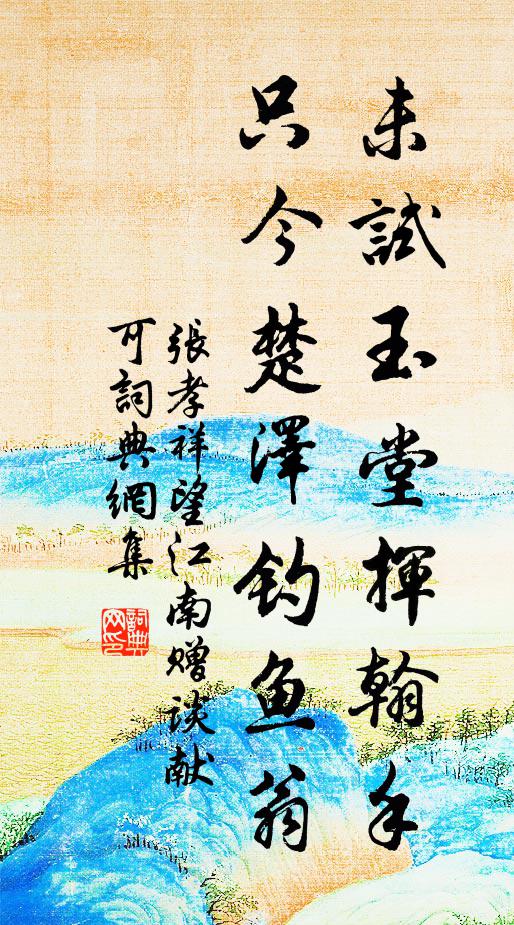 未試玉堂揮翰手
只今楚澤釣魚翁
張孝祥望江南贈談献
可詞典網集
詞典网印